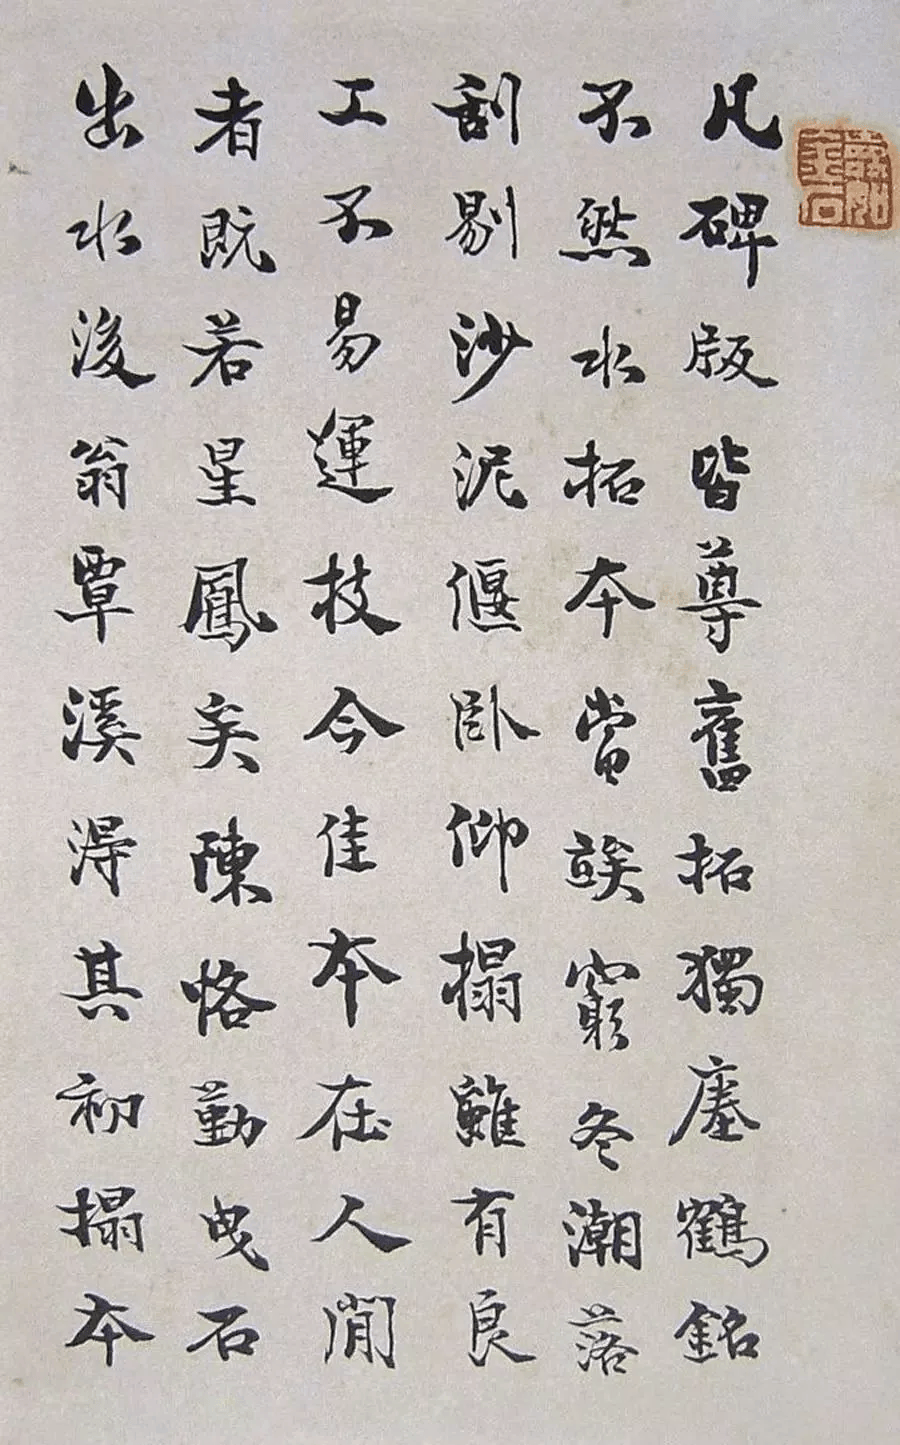 凡碑版皆尊舊拓獨瘞鶴銘
不然水拓本當竢窮冬潮落
刮剔沙泥偃卧仰搨雖有良
工不易運技今佳本在人閒
者既若星鳳矣陳恪勤曳石
出水後翁覃溪得其初搨本